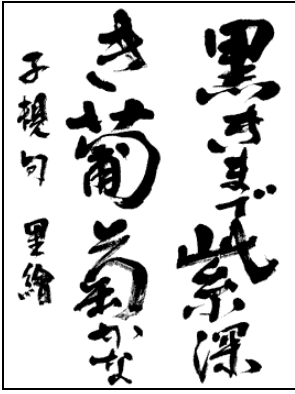 黒きまで紫深
き葡萄かな
子規句 里繪